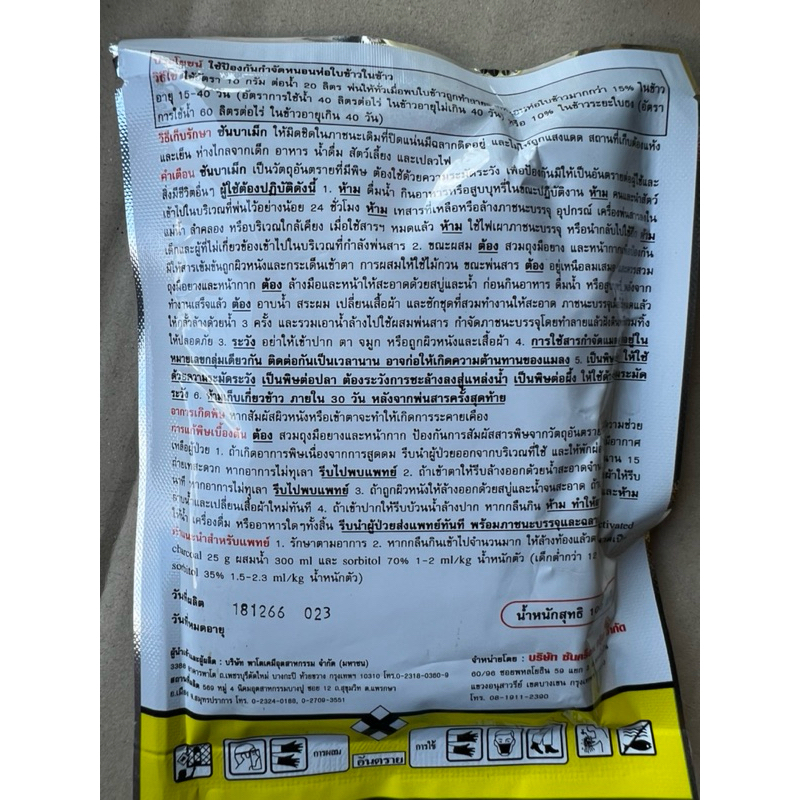 ประโยชน์ ใช้ป้องกันกำจัดหนอนห่อใบข้าวในข้าว
วิธีใช้ ใช้อัตรา 10 กรัม ต่อน้ำ 20 ลิตร พ่นให้ทั่วเมื่อพบใบข้าวถูกทำลาย ห่อใบข้าวมากกว่า 15% ในข้าว
อายุ 15-40 วัน (อัตราการใช้น้ำ 40 ลิตรต่อไร่ ในข้าวอายุไม่เกิน 40 วัน) หรือ 10% ในข้าวระยะใบธง (อัตรา
การใช้น้ำ 60 ลิตรต่อไร่ ในข้าวอายุเกิน 40 วัน)
วิธีเก็บรักษา ซันบาเม็ก ให้มิดชิดในภาชนะเดิมที่ปิดแน่นมีฉลากติดอยู่ และไม่ให้ถูกแสงแดด สถานที่เก็บต้องแห้ง
และเย็น ห่างไกลจากเด็ก อาหาร น้ำดื่ม สัตว์เลี้ยง และเปลวไฟ
คำเตือน ซันบาเม็ก เป็นวัตถุอันตรายที่มีพิษ ต้องใช้ด้วยความระมัดระวัง เพื่อป้องกันมิให้เป็นอันตรายต่อผู้ใช้และ
สิ่งมีชีวิตอื่นๆ ผู้ใช้ต้องปฏิบัติดังนี้ 1. ห้าม ดื่มน้ำ กินอาหารหรือสูบบุหรี่ในขณะปฏิบัติงาน ห้าม คนและนำสัตว์
เข้าไปในบริเวณที่พ่นไว้อย่างน้อย 24 ชั่วโมง ห้าม เทสารที่เหลือหรือล้างภาชนะบรรจุ อุปกรณ์ เครื่องพ่นสารลงใน
แม่น้ำ ลำคลอง หรือบริเวณใกล้เคียง เมื่อใช้สารฯ หมดแล้ว ห้าม ใช้ไฟเผาภาชนะบรรจุ หรือนำกลับไปใช้อีก ห้าม
เด็กและผู้ที่ไม่เกี่ยวข้องเข้าไปในบริเวณที่กำลังพ่นสาร 2. ขณะผสม ต้อง สวมถุงมือยาง และหน้ากากเพื่อป้องกัน
มิให้สารเข้มข้นถูกผิวหนังและกระเด็นเข้าตา การผสมให้ใช้ไม้กวน ขณะพ่นสาร ต้อง อยู่เหนือลมเสมอ และควรสวม
ถุงมือยางและหน้ากาก ต้อง ล้างมือและหน้าให้สะอาดด้วยสบู่และน้ำ ก่อนกินอาหาร ดื่มน้ำ หรือสูบบุหรี่ หลังจาก
ทำงานเสร็จแล้ว ต้อง อาบน้ำ สระผม เปลี่ยนเสื้อผ้า และซักชุดที่สวมทำงานให้สะอาด ภาชนะบรรจุเมื่อหมดแล้ว
ให้กลั้วล้างด้วยน้ำ 3 ครั้ง และรวมเอาน้ำล้างไปใช้ผสมพ่นสาร กำจัดภาชนะบรรจุโดยทำลายแล้วฝังดินหรือรวมทิ้ง
ให้ปลอดภัย 3. ระวัง อย่าให้เข้าปาก ตา จมูก หรือถูกผิวหนังและเสื้อผ้า 4. การใช้สารกำจัดแมลงอยู่ใน
หมายเลขกลุ่มเดียวกัน ติดต่อกันเป็นเวลานาน อาจก่อให้เกิดความต้านทานของแมลง 5. เป็นพิษ ให้ใช้
ด้วยความระมัดระวัง เป็นพิษต่อปลา ต้องระวังการชะล้างลงสู่แหล่งน้ำ เป็นพิษต่อผึ้ง ให้ใช้ด้วยระมัด
ระวัง 6. ห้ามเก็บเกี่ยวข้าว ภายใน 30 วัน หลังจากพ่นสารครั้งสุดท้าย
อาการเกิดพิษ หากสัมผัสผิวหนังหรือเข้าตาจะทำให้เกิดการระคายเคือง
การแก้พิษเบื้องต้น ต้อง สวมถุงมือยางและหน้ากาก ป้องกันการสัมผัสสารพิษจากวัตถุอันตราย ความช่วย
เหลือผู้ป่วย 1. ถ้าเกิดอาการพิษเนื่องจากการสูดดม รีบนำผู้ป่วยออกจากบริเวณที่ใช้ และให้พักผ่อน มีอากาศ
ถ่ายเทสะดวก หากอาการไม่ทุเลา รีบไปพบแพทย์ 2. ถ้าเข้าตาให้รีบล้างออกด้วยน้ำสะอาดจำนวน นาน 15
นาที หากอาการไม่ทุเลา รีบไปพบแพทย์ 3. ถ้าถูกผิวหนังให้ล้างออกด้วยสบู่และน้ำจนสะอาด ถ้า ผ้าให้รีบ
อาบน้ำและเปลี่ยนเสื้อผ้าใหม่ทันที 4. ถ้าเข้าปากให้รีบบ้วนน้ำล้างปาก หากกลืนกิน ห้าม ทำให้ และห้าม
ให้น้ำ เครื่องดื่ม หรืออาหารใดๆทั้งสิ้น รีบนำผู้ป่วยส่งแพทย์ทันที พร้อมภาชนะบรรจุและฉลาก
คำแนะนำสำหรับแพทย์ 1. รักษาตามอาการ 2. หากกลืนกินเข้าไปจำนวนมาก ให้ล้างท้องแล้ว activated
charcoal 25 g ผสมน้ำ 300 ml และ sorbitol 70% 1-2 ml/kg น้ำหนักตัว (เด็กต่ำกว่า 12
sorbitol 35% 1.5-2.3 ml/kg น้ำหนักตัว)
วันที่ผลิต 181266 023
วันที่หมดอายุ
น้ำหนักสุทธิ
ผู้นำเข้าและผู้ผลิต : บริษัท พาโตเคมีอุตสาหกรรม จำกัด (มหาชน)
3388 อาคารพาโต ถ.เพชรบุรีตัดใหม่ บางกะปิ ห้วยขวาง กรุงเทพฯ 10310 โทร.0-2318-0360-9
สถานที่ผลิต 569 หมู่ 4 นิคมอุตสาหกรรมบางปู ซอย 12 ถ.สุขุมวิท ต.แพรกษา
อ.เมือง จ.สมุทรปราการ โทร. 0-2324-0188, 0-2709-3551
จำหน่ายโดย : บริษัท จำกัด
60/96 ซอยพหลโยธิน 59 แยก
แขวงอนุสาวรีย์ เขตบางเขน
โทร. 08-1911-2390
การผสม
อันตราย
การใช้